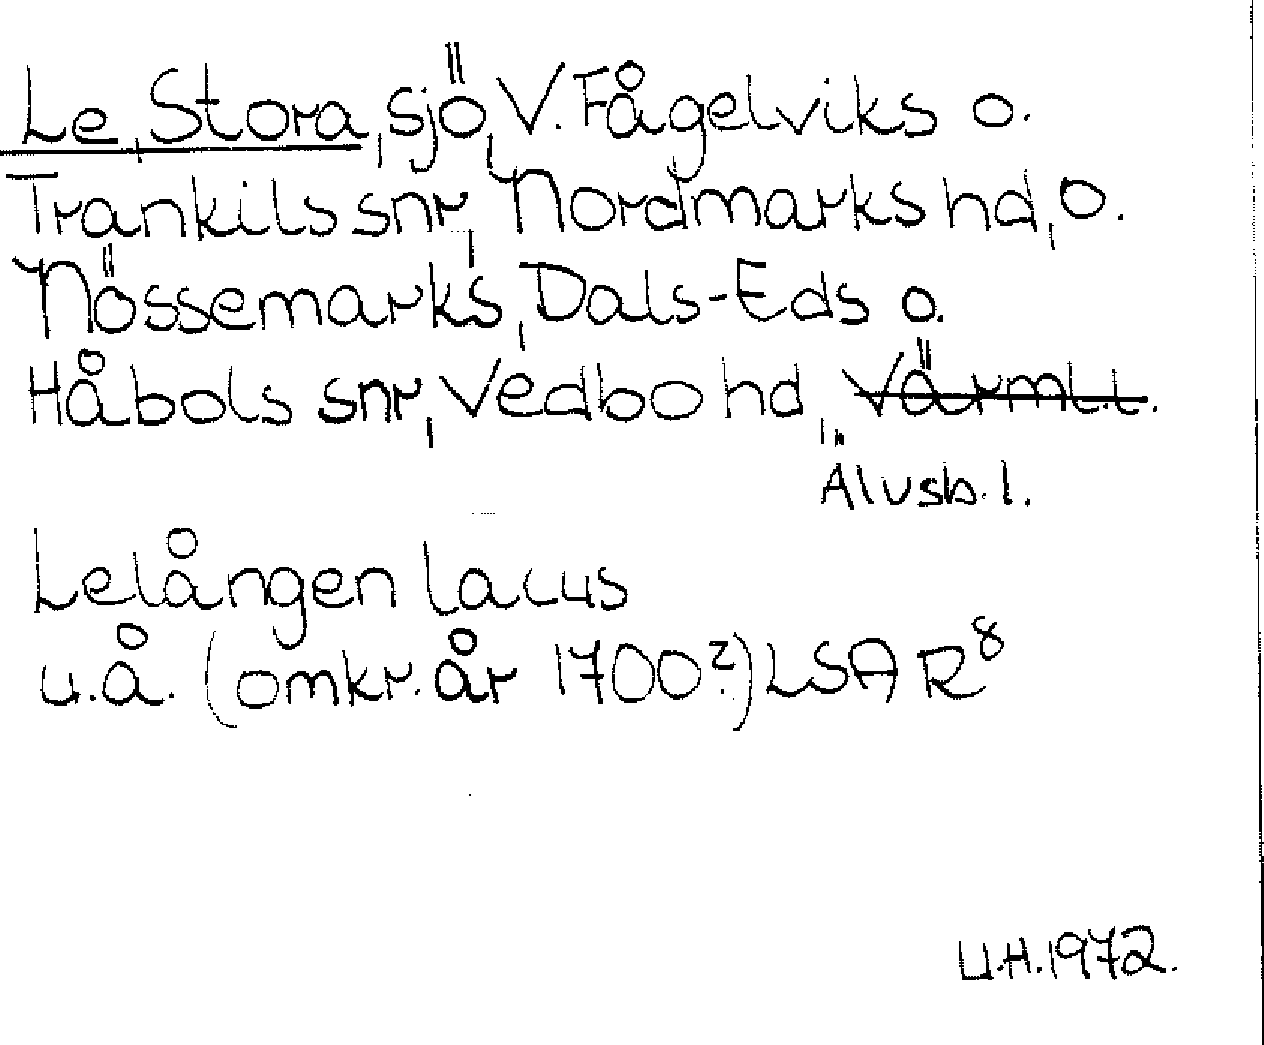 Le, Stora, sjö, V. Fågelviks o.
Trankils snr, Nordmarks hd, o.
Nössemarks, Dals-Eds o.
Håbols snr, Vedbo hd, Värml.l.
Älvsb. l.
Lelången lacus
u.å. (omkr. år 1700?) LSA R8
U.H. 1972.